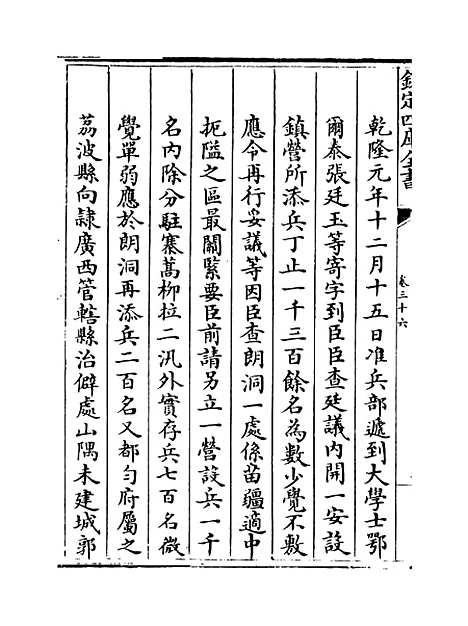 欽定四庫全書
卷三十六
乾隆元年十二月十五日准兵部遞到大學士鄂
爾泰張廷玉等寄字到臣臣查廷議內開一安設
鎮營所添兵丁止一千三百餘名為數少覺不敷
應令再行妥議等因臣查朗洞一處係苗疆適中
扼隘之區最關緊要臣前請另立一營設兵一千
名內除分駐寨蒿柳拉二汛外實存兵七百名微
覺單弱應於朗洞再添兵二百名又都勻府屬之
荔波縣向隸廣西管轄縣治僻處山隅未建城郭